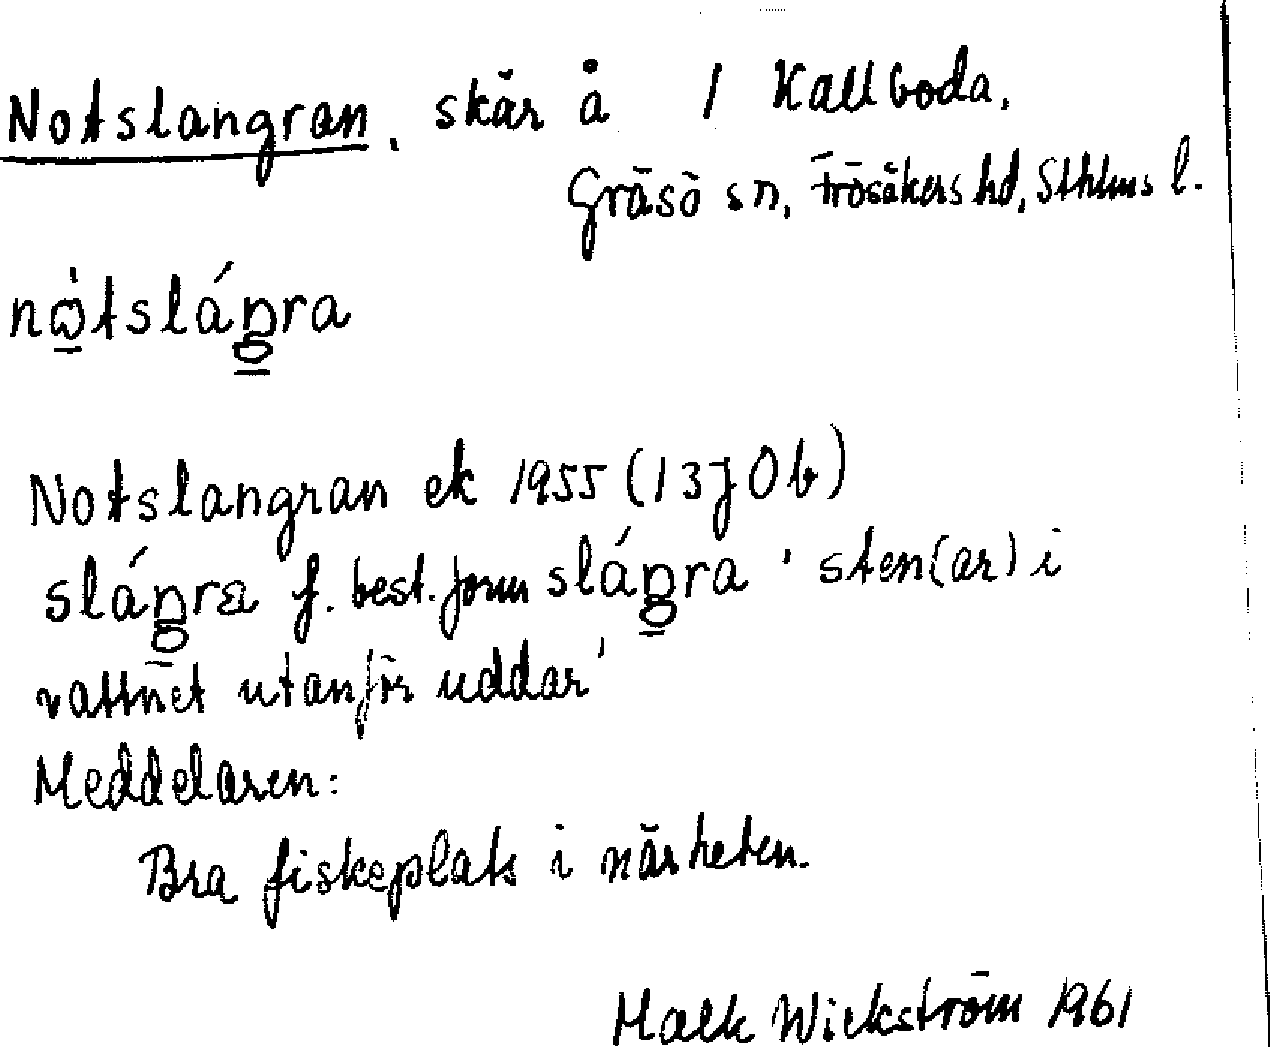 Notslangran, skär å 1 Kallboda,
Gräsö sn, Frösåkers hd, Sthlms l.
nὼ̨tsláŋra
Notslangran ek 1955 (13J0b)
sláŋra f. best. form sláŋra 'sten(ar) i
vattnet utanför uddar'
Meddelaren:
Bra fiskeplats i närheten.
Wickström 1961